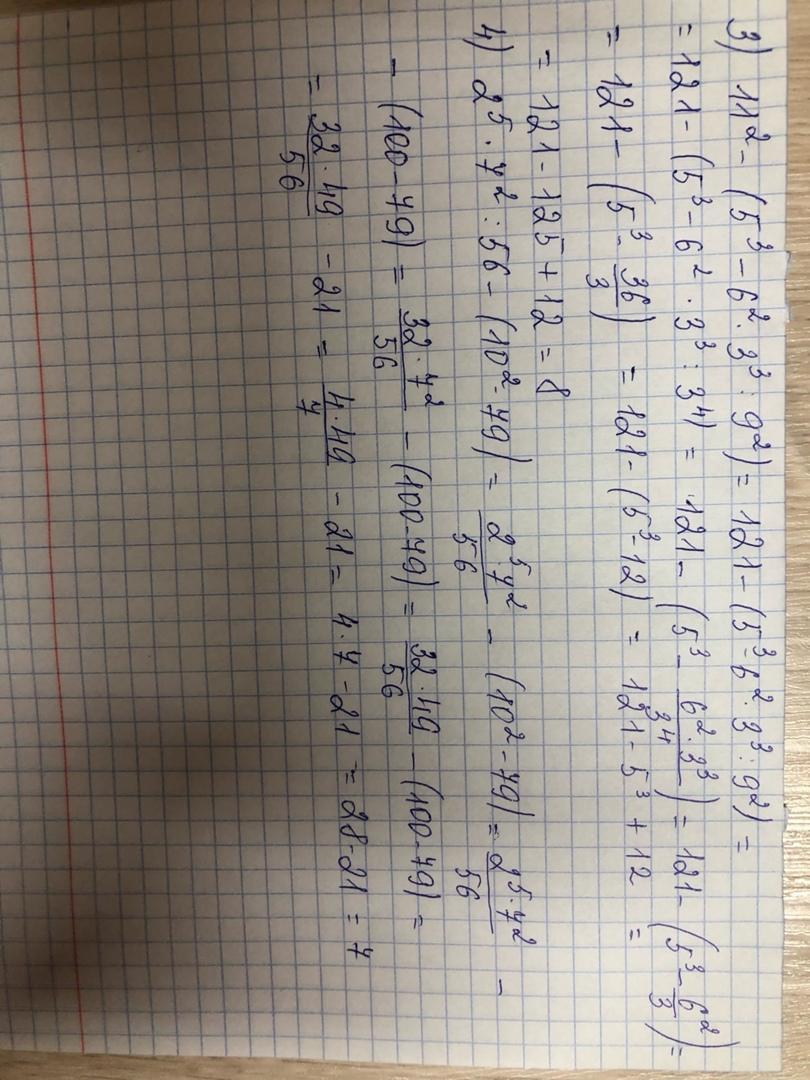 3) 11² - (5³ - 6² · 3³ : 9²) = 121 - (5³ - 6² · 3³ : 9²) =
= 121 - (5³ - 6² · 3³ : 3⁴) = 121 - (5³ - 6² · 3³ / 3⁴) = 121 - (5³ - 6² / 3) =
= 121 - (5³ - 36 / 3) = 121 - (5³ - 12) = 121 - 5³ + 12 =
= 121 - 125 + 12 = 8
4) 2⁵ · 7² : 56 - (10² - 79) = 2⁵ · 7² / 56 - (10² - 79) = 2⁵ · 7² / 56 -
- (100 - 79) = 32 · 7² / 56 - (100 - 79) = 32 · 49 / 56 - (100 - 79) =
= 32 · 49 / 56 - 21 = 4 · 49 / 7 - 21 = 4 · 7 - 21 = 28 - 21 = 7